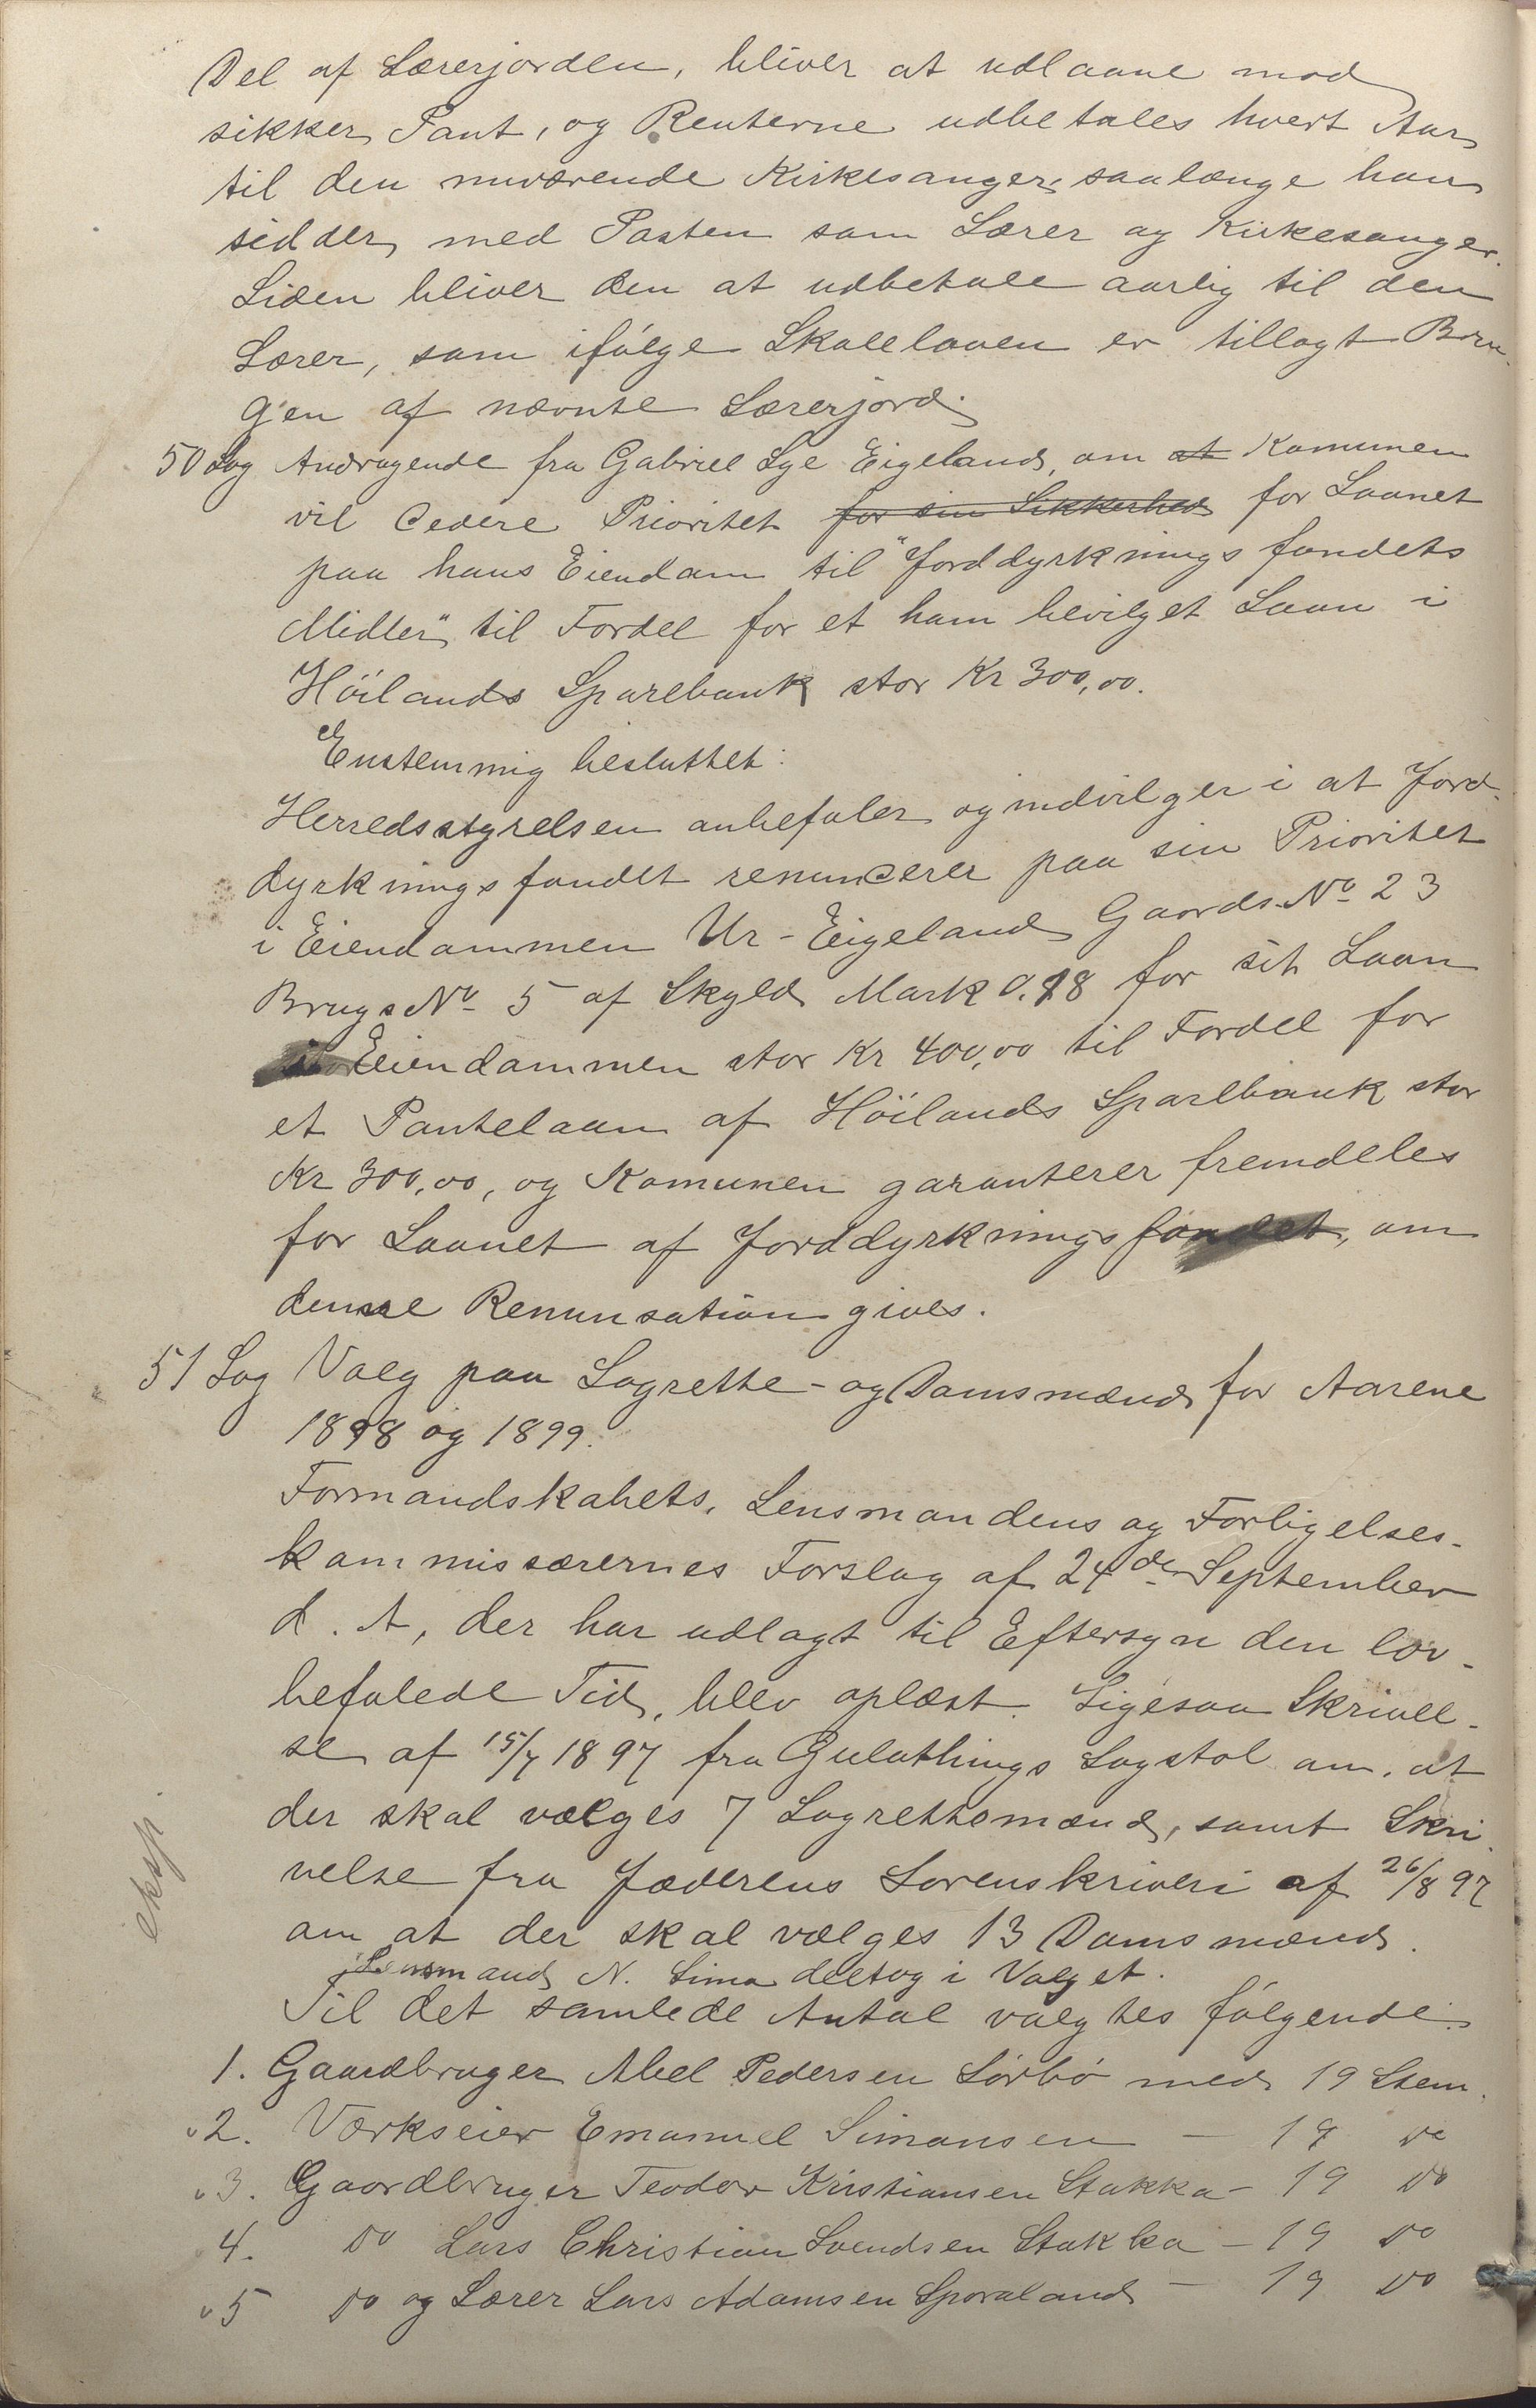 Del af Lærerjorden, bliver at udlaane mod
sikker Pant, og Renterne udbetales hvert Aar
til den nuværende Kirkesanger, saalænge han
sidder med Posten som Lærer og Kirkesanger.
Siden bliver den at udbetale aarlig til den
Lærer, som ifølge Skoleloven er tillagt Bru-
gen af nævnte Lærerjord.
50 Sag Andragende fra Gabriel Lye Eigeland, om at Komunen
vil Cedere Prioritet for sin Sikkerhed for Laanet
paa hans Eiendom til "Jorddyrkningsfondets
Midler" til Fordel for et ham bevilget Laan i
Höilands Sparebank stor Kr 300,00.
Enstemmig besluttet:
Herredsstyrelsen anbefaler og indvilger i at Jord-
dyrkningsfondet renuncerer paa sin Prioritet
i Eiendommen Ur-Eigeland Gaards-No 23
Brugs No 5 af Skyld Mark 0.98 for sit Laan
i Eiendommen stor Kr 400,00 til Fordel for
et Pantelaan af Höilands Sparebank stor
Kr 300,00, og Komunen garanterer fremdeles
for Laanet af Jorddyrkningsfondet, om
denne Renunsation gives.
51 Sag Valg paa Lagrette- og Domsmænd for Aarene
1898 og 1899.
Formandskabets, Lensmandens og Forligelses-
kommissærernes Forslag af 24de September
d. A, der har udlagt til Eftersyn den lov-
befalede Tid, blev oplæst. Ligesaa Skrivel-
se af 15/7 1897 fra Gulathings Lagstol om, at
der skal vælges 7 Lagrettemænd, samt Skri-
velse fra Jæderens Sorenskriveri af 26/8 97
om at der skal vælges 13 Domsmænd.
Lensmand N. Sima deltog i Valget.
Til det samlede Antal valgtes følgende:
1. Gaardbruger Abel Pedersen Sörbö med 19 Stem.
2. Værkseier Emanuel Simonsen — 19 do
3. Gaardbruger Teodor Kristiansen Stokka - 19 do
4. do Lars Christian Svendsen Stokka - 19 do
5 do og Lærer Lars Adamsen Sporaland — 19 do
eksp.